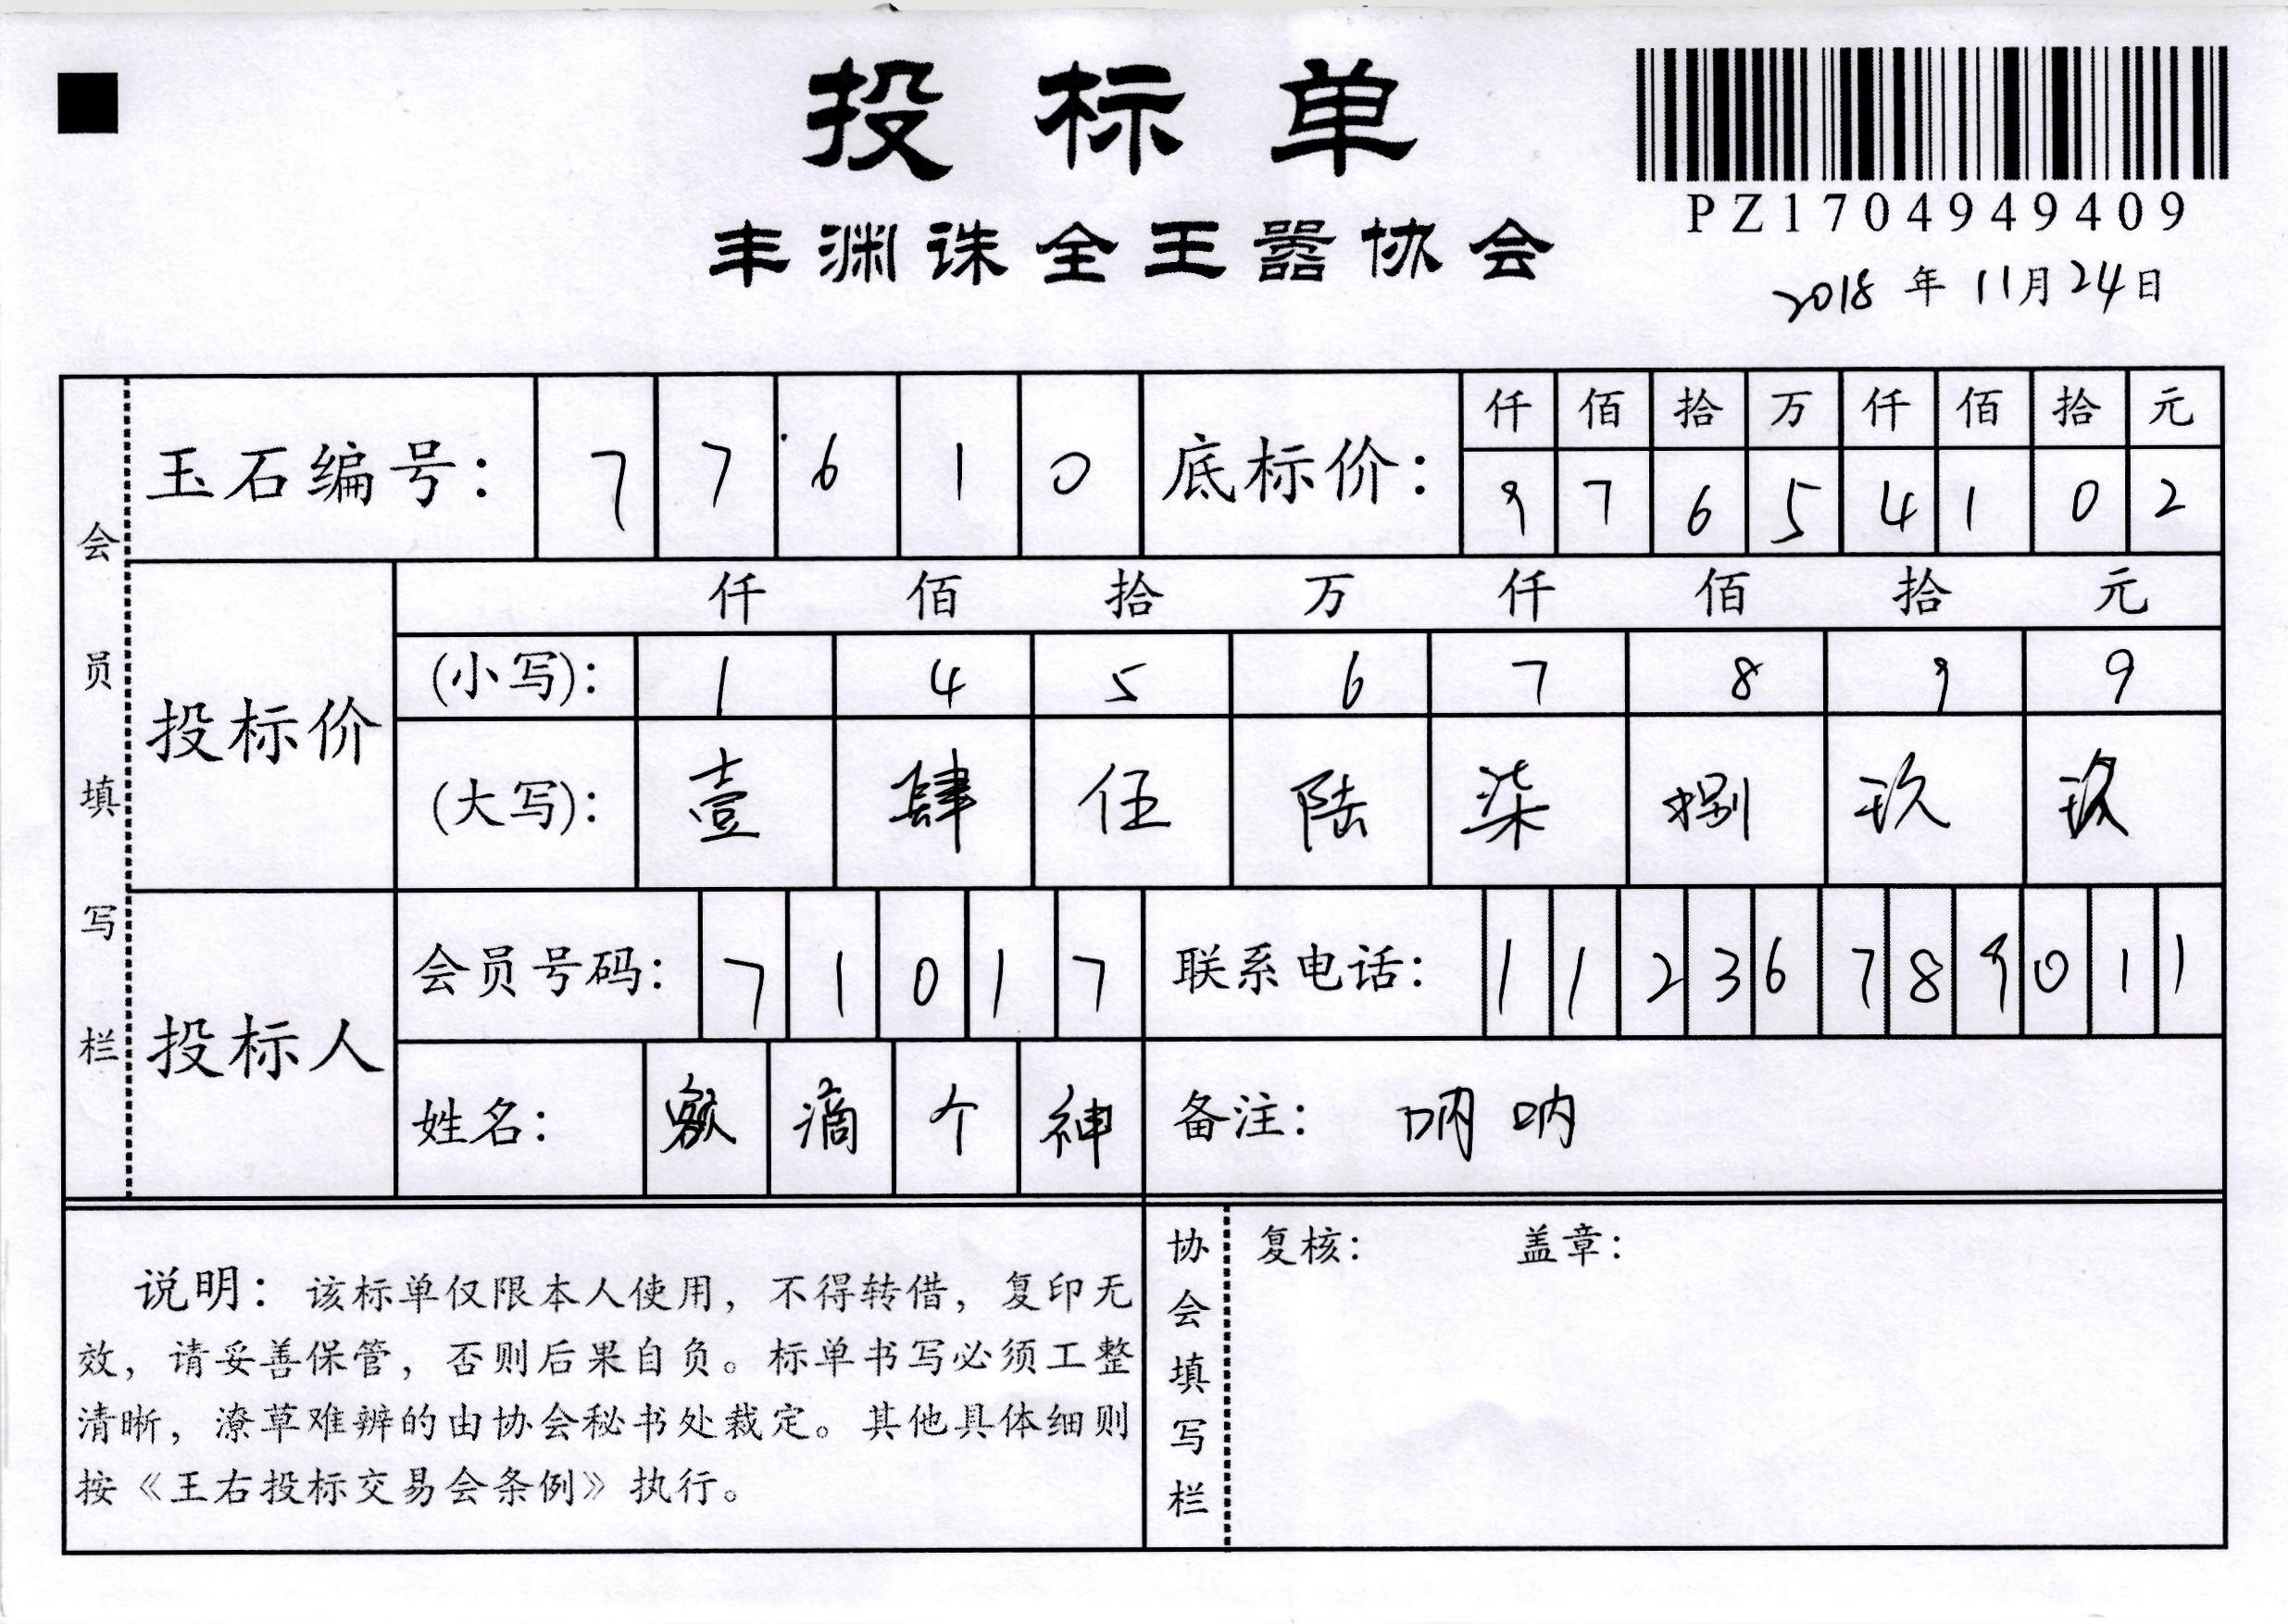 投标单
PZ1704949409
丰渊诛全王嚣协会
2018年11月24日
会员填写栏
玉石编号： 7 7 6 1 0
底标价：
仟 佰 拾 万 仟 佰 拾 元
9 7 6 5 4 1 0 2
投标价
仟 佰 拾 万 仟 佰 拾 元
(小写)： 1 4 5 6 7 8 9 9
(大写)： 壹 肆 伍 陆 柒 捌 玖 玖
投标人
会员号码： 7 1 0 1 7
联系电话： 1 1 2 3 6 7 8 9 0 1 1
姓名： 滴 个 神
备注： 呐 呐
说明：该标单仅限本人使用，不得转借，复印无
效，请妥善保管，否则后果自负。标单书写必须工整
清晰，潦草难辨的由协会秘书处裁定。其他具体细则
按《王右投标交易会条例》执行。
协会填写栏
复核： 盖章：